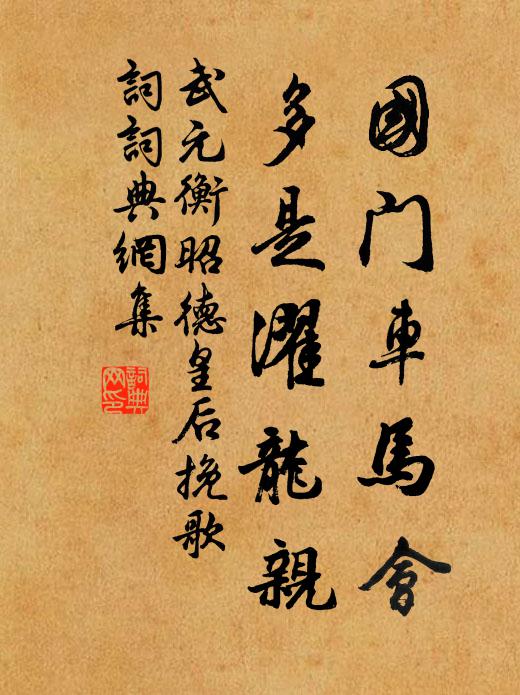 國門車馬會
多是濯龍親
武元衡昭德皇后挽歌
詞詞典網集
詞典网印